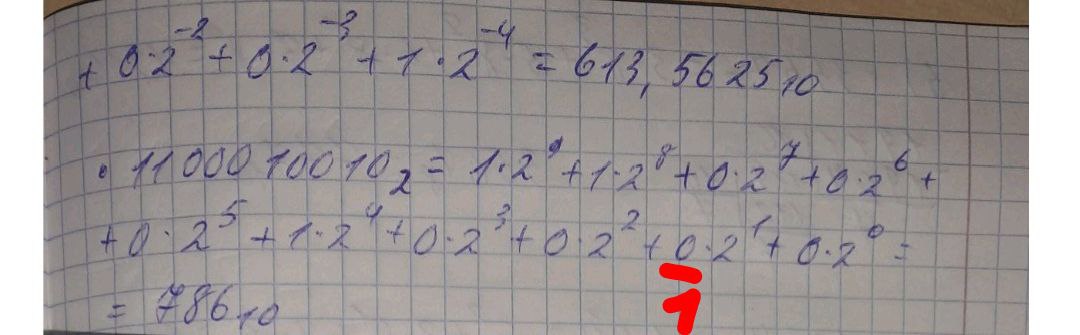 + 0·2⁻² + 0·2⁻³ + 1·2⁻⁴ = 613,5625₁₀
· 1100010010₂ = 1·2⁹ + 1·2⁸ + 0·2⁷ + 0·2⁶ +
+ 0·2⁵ + 1·2⁴ + 0·2³ + 0·2² + 0·2¹ + 0·2⁰ =
1
= 786₁₀